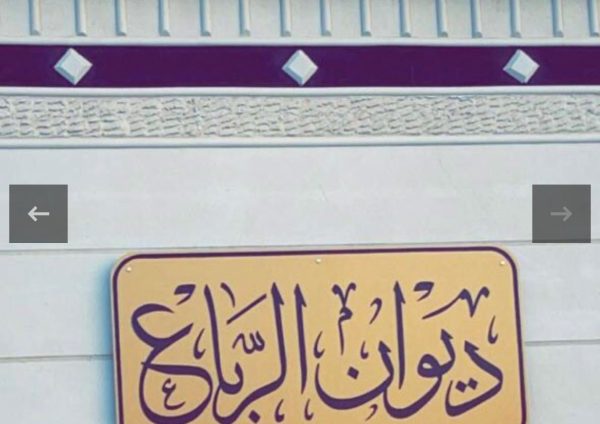 ديوان الرباع